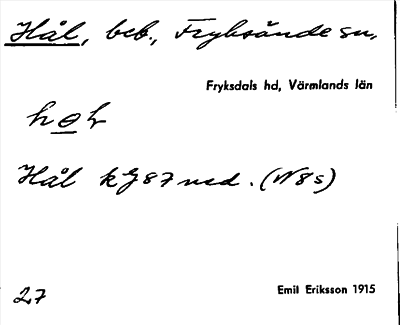 Hål, beb., Fryksände sn.
Fryksdals hd, Värmlands län
Hål kJ 87 nsd. (N8s)
27
Emil Eriksson 1915